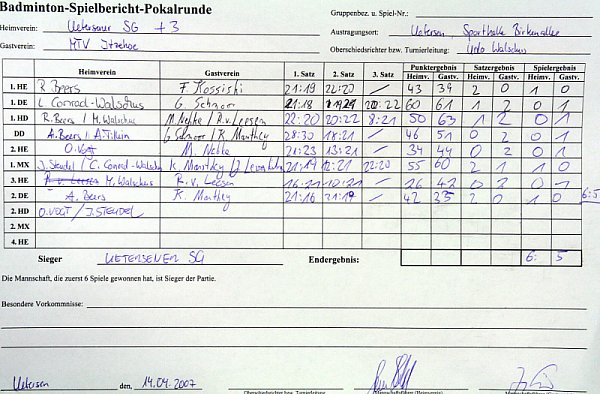 Badminton-Spielbericht-Pokalrunde
Gruppenbez. u. Spiel-Nr.:
Heimverein: Uetersener SG +3
Austragungsort: Uetersen, Sporthalle Birkenallee
Gastverein: MTV Itzehoe
Oberschiedsrichter bzw. Turnierleitung: Udo Walschus
Punktergebnis Satzergebnis Spielergebnis
Heimverein Gastverein 1. Satz 2. Satz 3. Satz Heimv. Gastv. Heimv. Gastv. Heimv. Gastv.
1. HE R. Beers F. Kossiski 21:19 22:20 / 43 39 2 0 1 0
1. DE L. Conrad-Walschus G. Schnoor 21:18 20:22 60 61 1 2 0 1
1. HD R. Beers / M. Walschus M. Nehke / R.v. Leesen 22:20 20:22 8:21 50 63 1 2 0 1
DD A. Beers / A. G. Schnoor / K. Manthey 28:30 18:21 / 46 51 0 2 0 1
2. HE O. Vogt M. Nehke 21:23 13:21 / 34 44 0 2 0 1
1. MX J. Steudel / C. Conrad-Walschus K. Manthey / 21:19 12:21 22:20 55 60 2 1 1 0
3. HE M. Walschus R. v. Leesen 16:21 10:21 / 26 42 0 2 0 1
2. DE A. Beers K. Manthey 21:16 21:19 / 42 35 2 0 1 0 6:5
2. HD O. VOGT / J. STEUDEL
2. MX
4. HE
Sieger UETERSENER SG Endergebnis: 6: 5
Die Mannschaft, die zuerst 6 Spiele gewonnen hat, ist Sieger der Partie.
Besondere Vorkommnisse:
Uetersen den, 14.04.2007
Oberschiedsrichter bzw. Turnierleitung Mannschaftsführer (Heimverein) Mannschaftsführer (Gastverein)